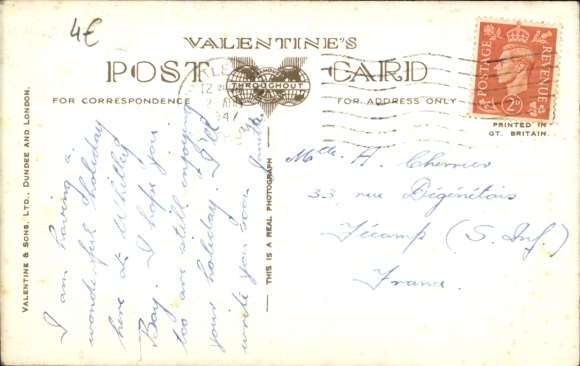 4€
VALENTINE'S
POST CARD
THROUGHOUT
FOR CORRESPONDENCE
FOR ADDRESS ONLY
POSTAGE
REVENUE
2D
PRINTED IN
GT. BRITAIN.
12
1947
VALENTINE & SONS, LTD., DUNDEE AND LONDON.
I am having a
wonderful holiday
here at Whitley
Bay. I hope you
too are still enjoying
your holiday. I'll
write you soon.
THIS IS A REAL PHOTOGRAPH
Mlle. A. Chemier
33, rue Dégénétais
Fécamp (S. Inf.)
France.